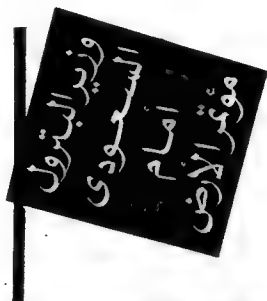 وزير البترول
السعودى
أمام
مؤتمر الأرض